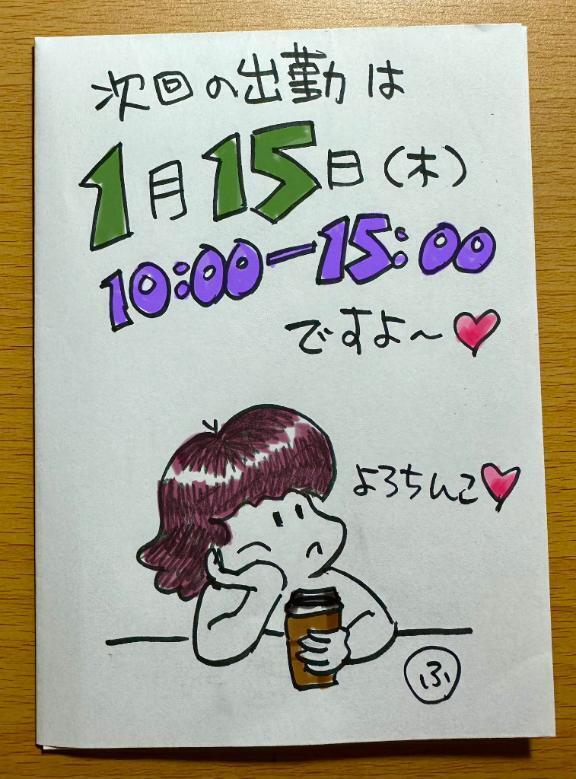 次回の出勤は
1月15日(木)
10:00ー15:00
ですよ〜
よろちんこ
ふ